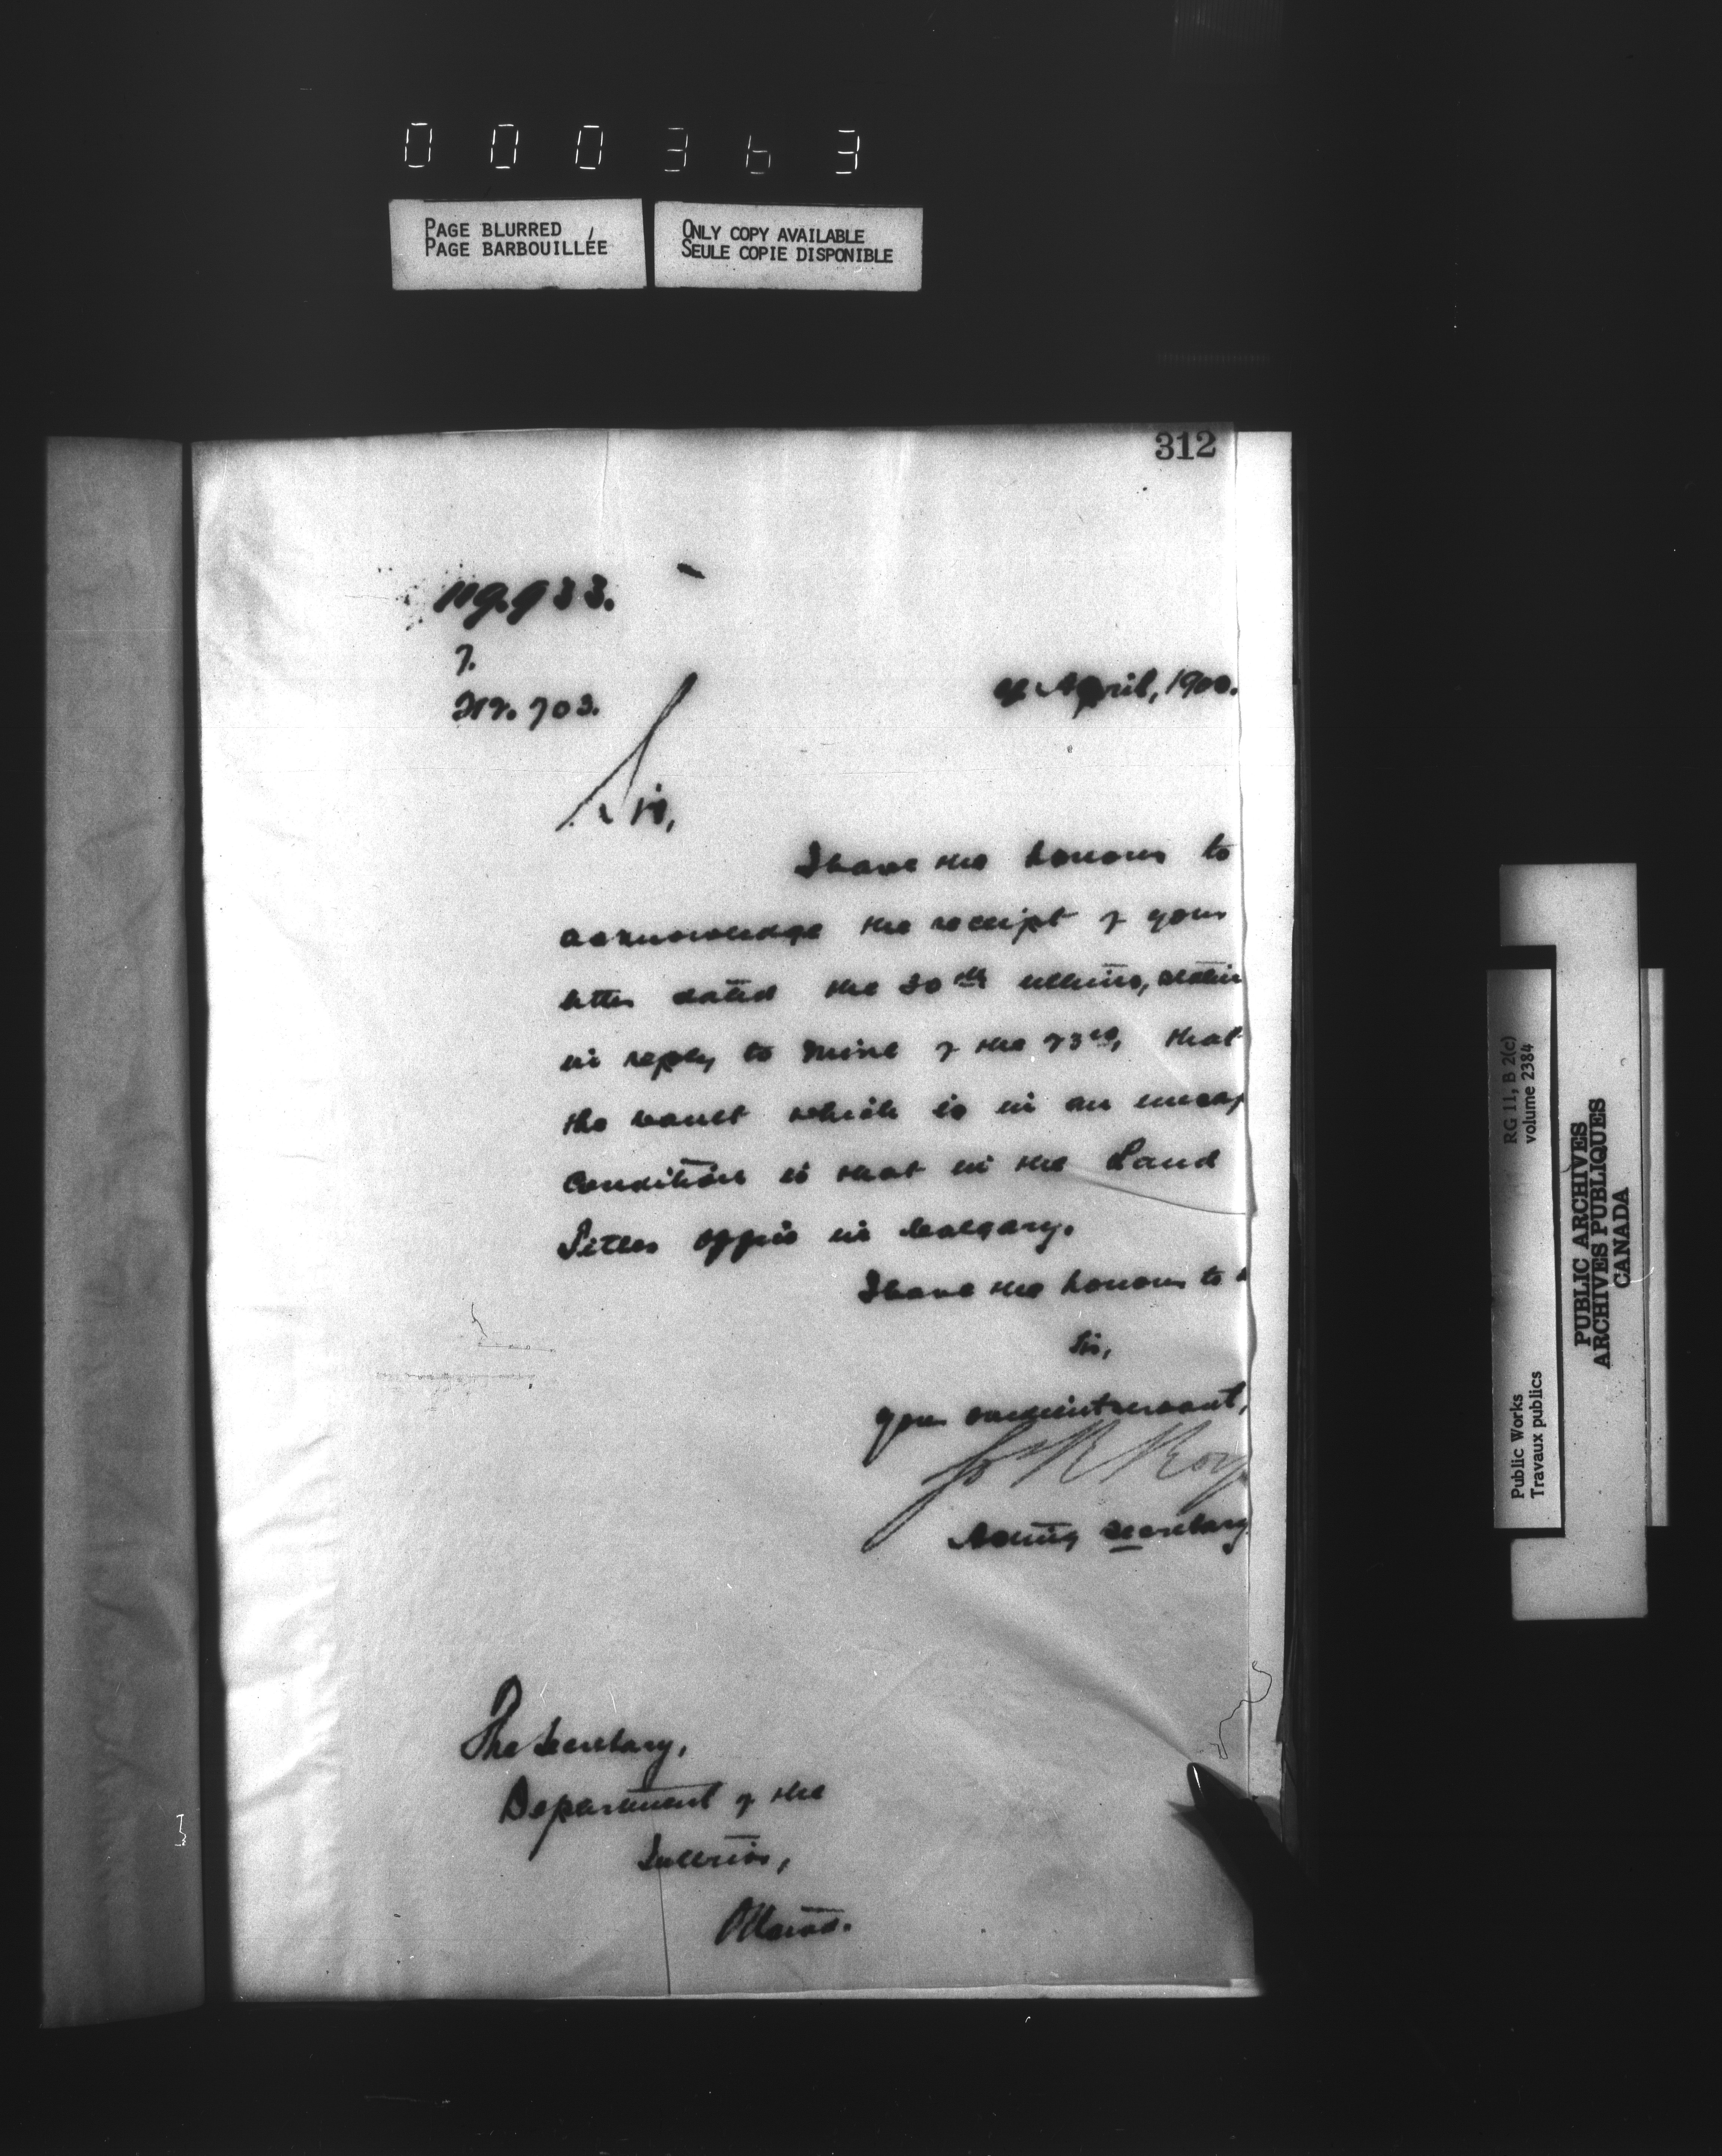 000363
PAGE BLURRED
PAGE BARBOUILLÉE
ONLY COPY AVAILABLE
SEULE COPIE DISPONIBLE
312
119.933.
7.
703.
April, 1900.
Sir,
I have the honour to
acknowledge the receipt of your
letter dated the 30th ultimo,
in reply to mine of the 23rd, that
the vault which is in an
condition is that in the Land
Titles Office in Calgary.
I have the honour to
Sir,
Your obedient servant,
Roy
Acting Secretary
The Secretary,
Department of the
Interior,
Ottawa.
RG 11, B 2(c)
volume 2384
Public Works
Travaux publics
PUBLIC ARCHIVES
ARCHIVES PUBLIQUES
CANADA